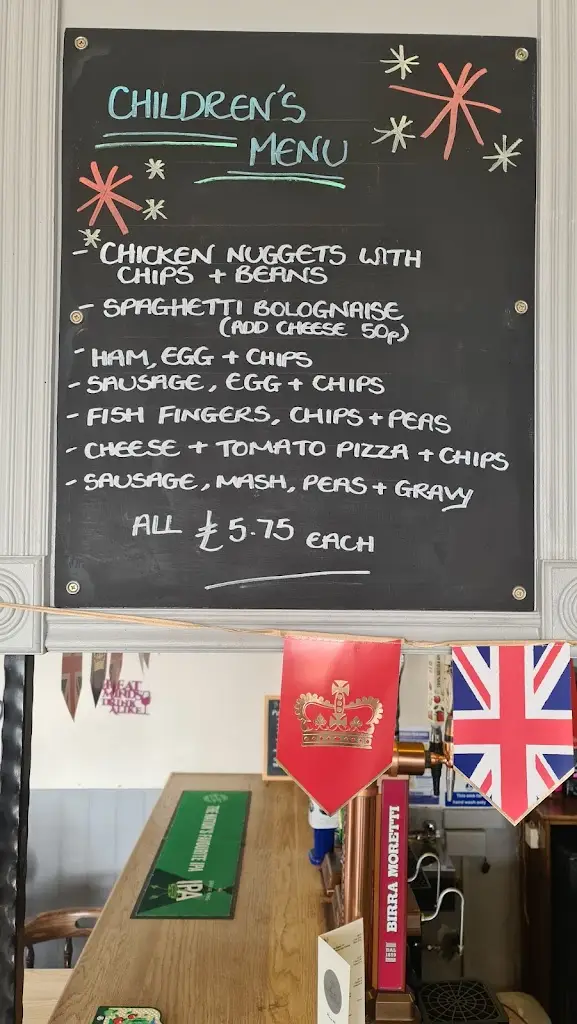 CHILDREN'S
MENU
- CHICKEN NUGGETS WITH
CHIPS + BEANS
- SPAGHETTI BOLOGNAISE
(ADD CHEESE 50p)
- HAM, EGG + CHIPS
- SAUSAGE, EGG + CHIPS
- FISH FINGERS, CHIPS + PEAS
- CHEESE + TOMATO PIZZA + CHIPS
- SAUSAGE, MASH, PEAS + GRAVY
ALL £5.75 EACH
GREAT
MINDS
DRINK
ALIKE
THE NATION'S FAVOURITE IPA
IPA
BIRRA MORETTI